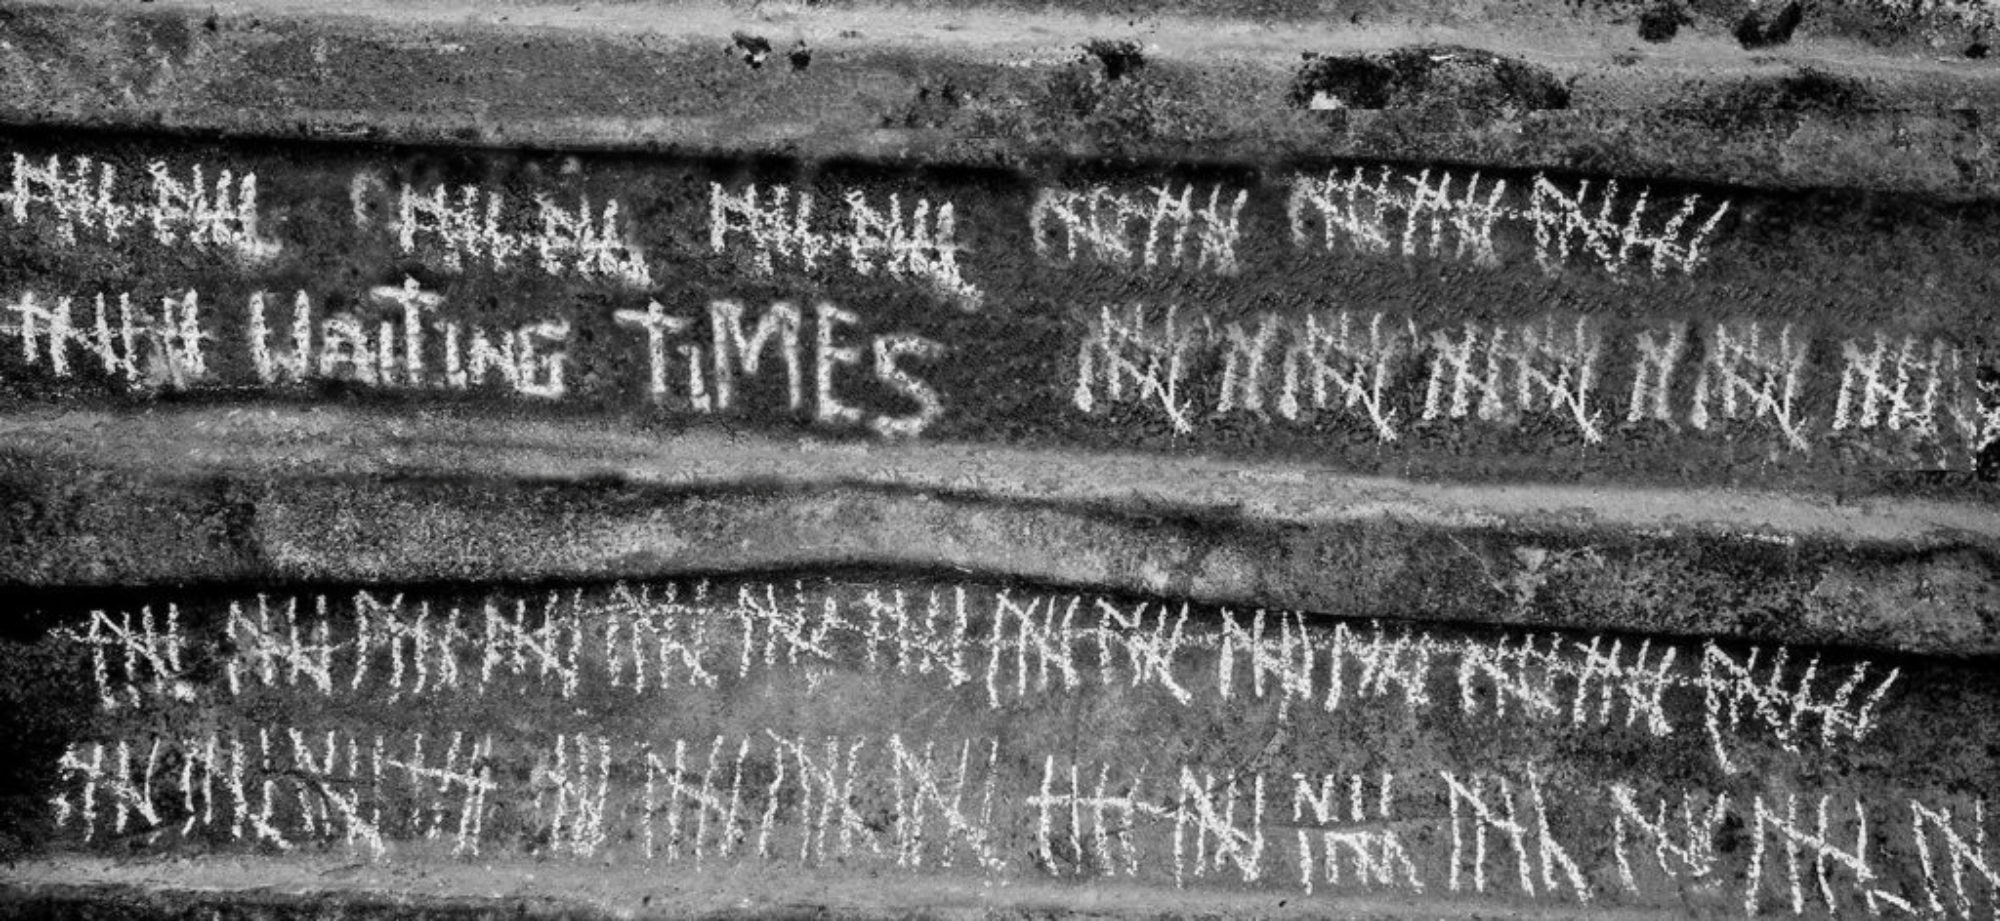 WAITING TIMES